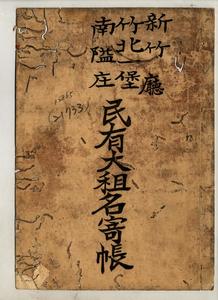 新竹廳
竹北一堡
南隘庄
民有大租名寄帳
12265
(2733)